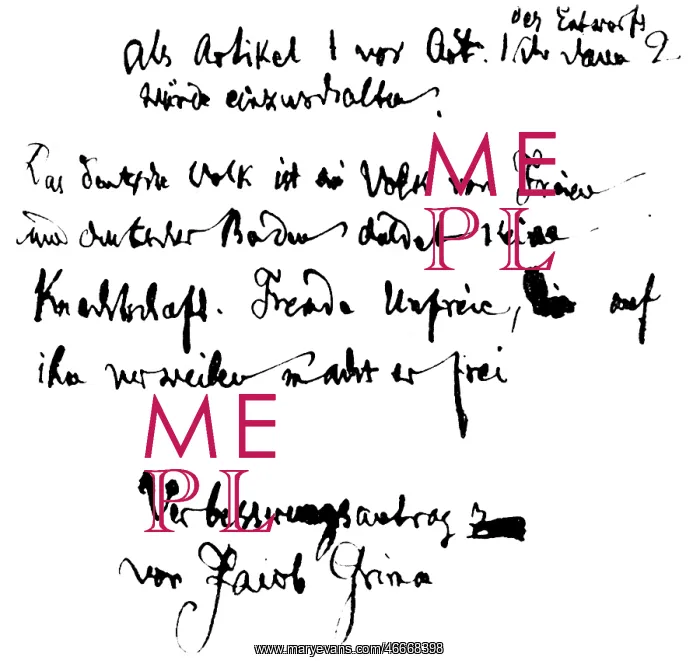 des Entwurfs
als Artikel 1 vor Art. 1
würde einzuschalten:
Das deutsche Volk ist ein Volk von Freien
und deutscher Boden duldet keine
Knechtschaft. Fremde Unfreie, die auf
ihm verweilen macht er frei
Verbesserungsantrag
von Jacob Grimm
ME
PL
ME
PL
www.maryevans.com/46668398